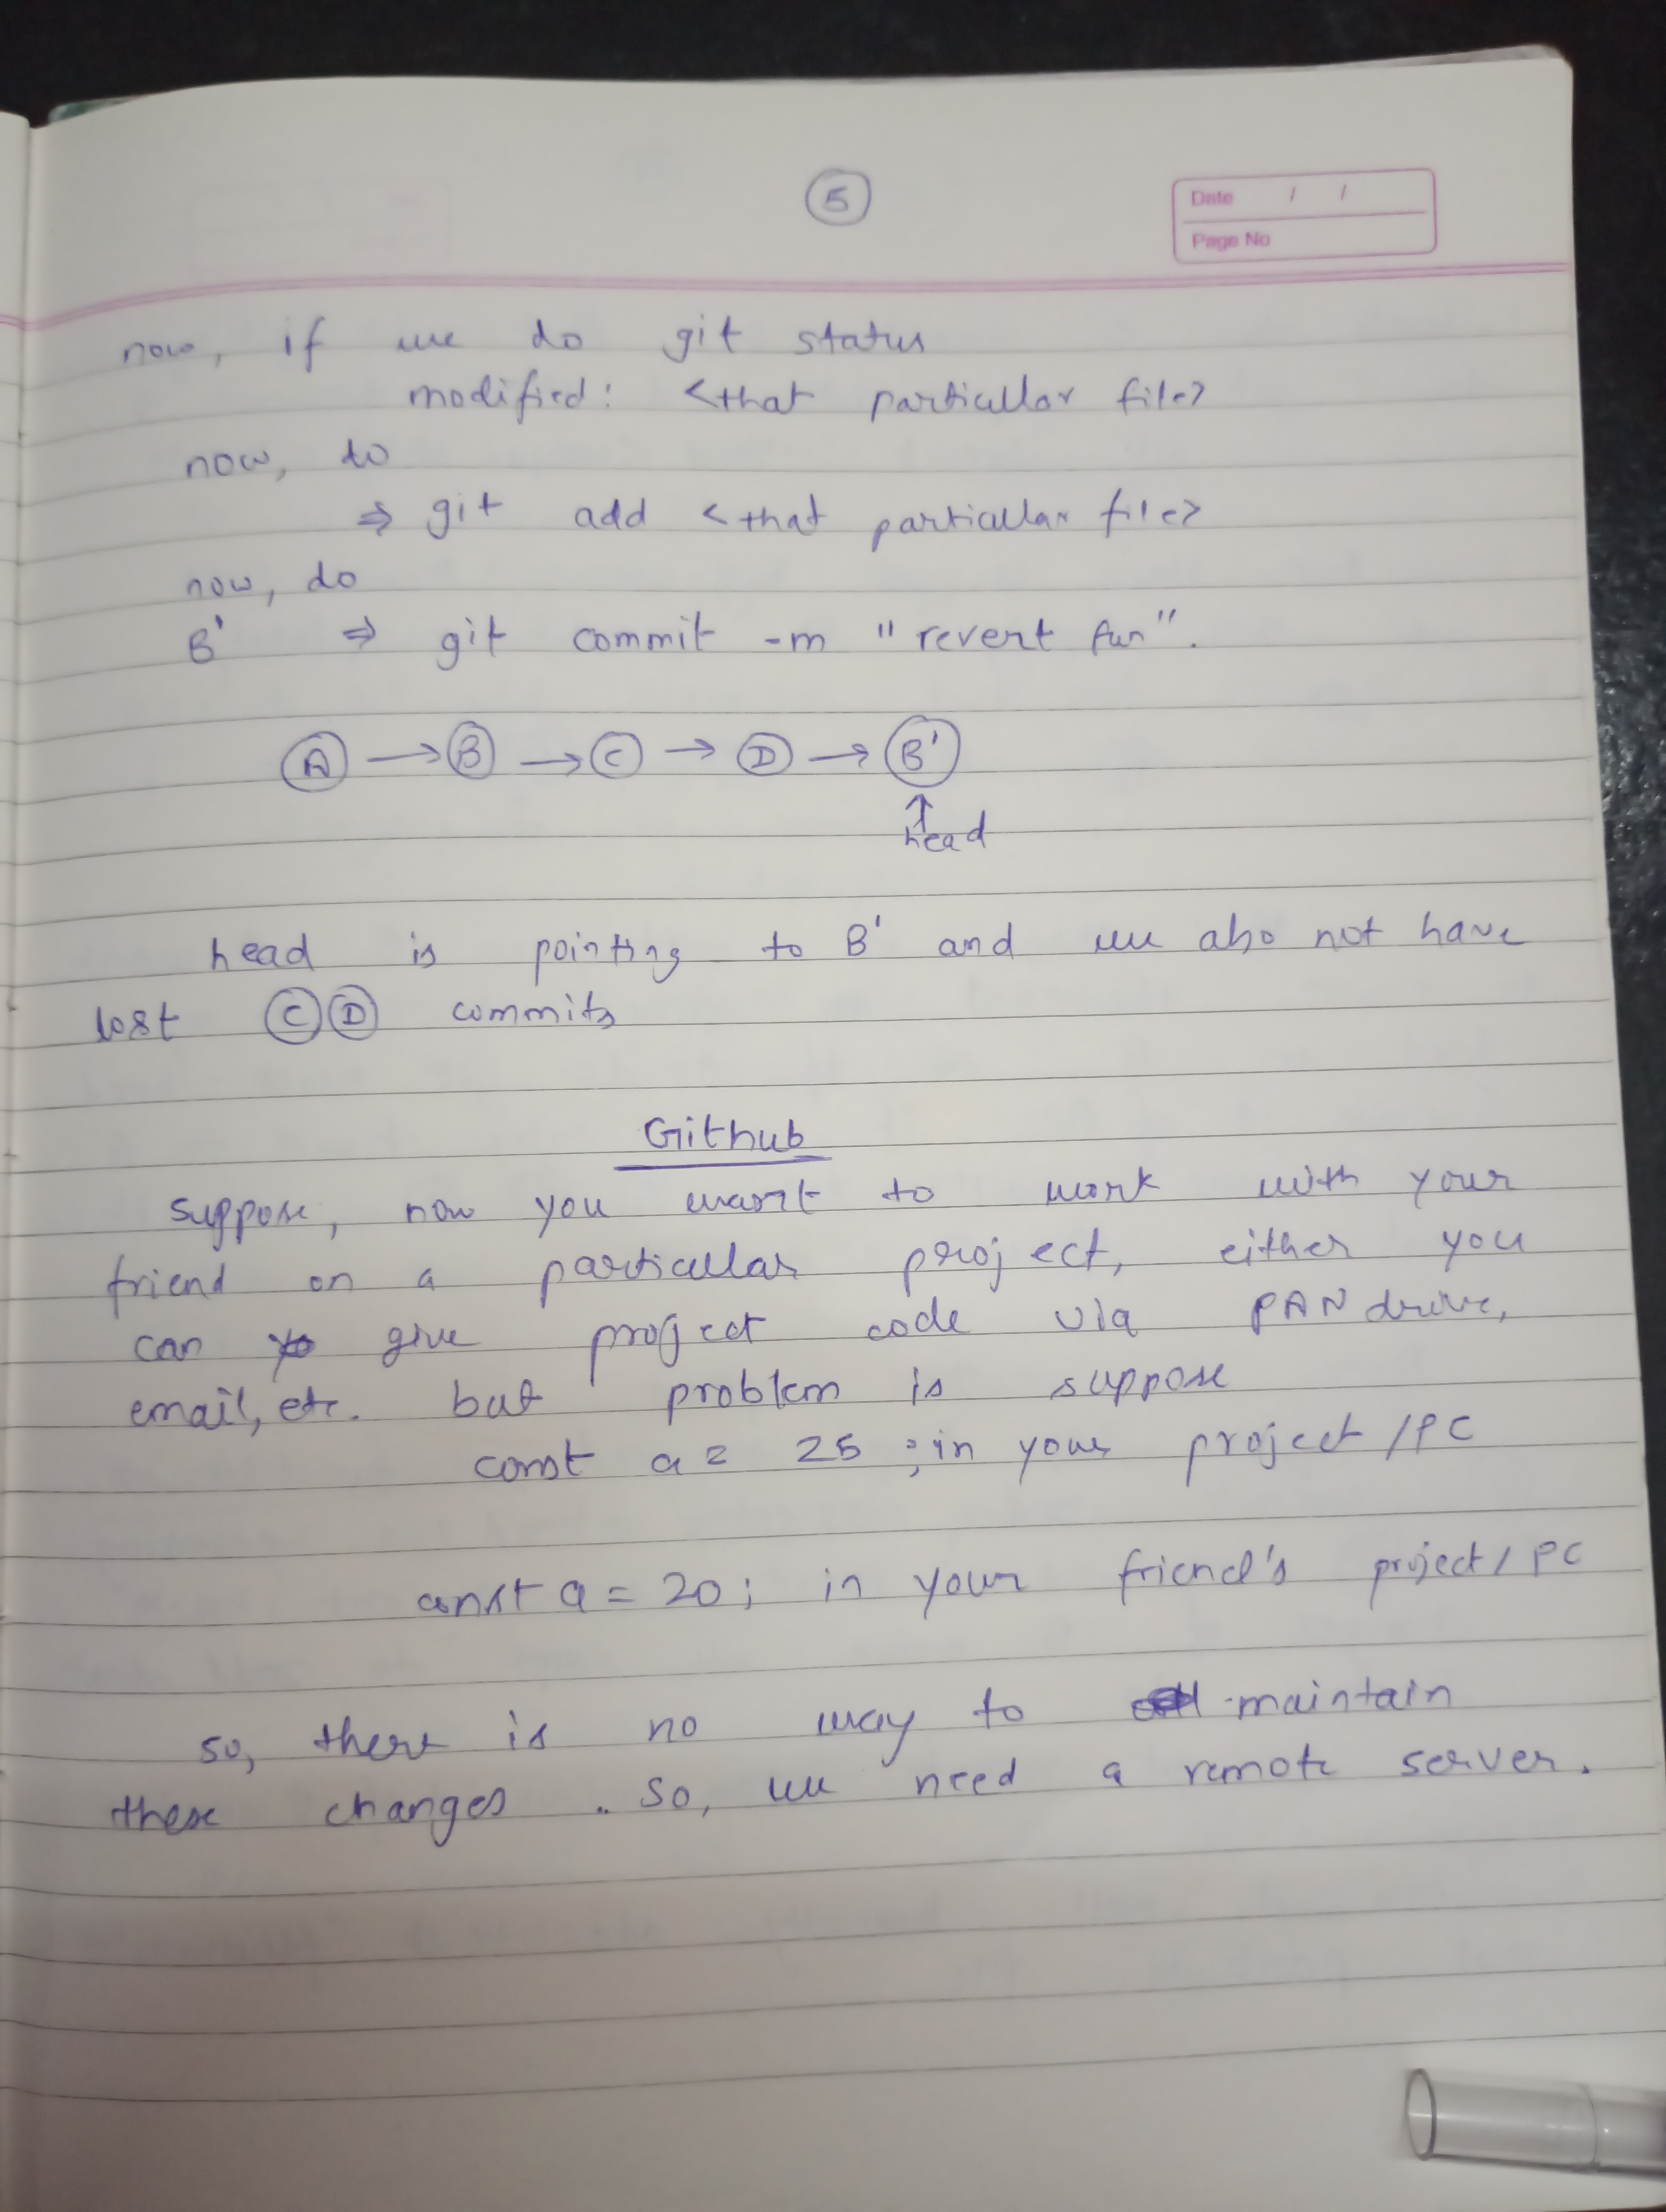 5
Date / /
Page No
now, if we do git status
modified: <that particullar file>
now, do
⇒ git add <that particullar file>
now, do
B' ⇒ git commit -m "revert fun".
A → B → C → D → B'
↑
head
head is pointing to B' and we also not have
lost C D commits
Github
suppose, now you want to work with your
friend on a particullar project, either you
can give project code via PAN drive,
email, etc. but problem is suppose
const a = 25 ; in your project / PC
const a = 20 ; in your friend's project / PC
so, there is no way to maintain
these changes . So, we need a remote server.